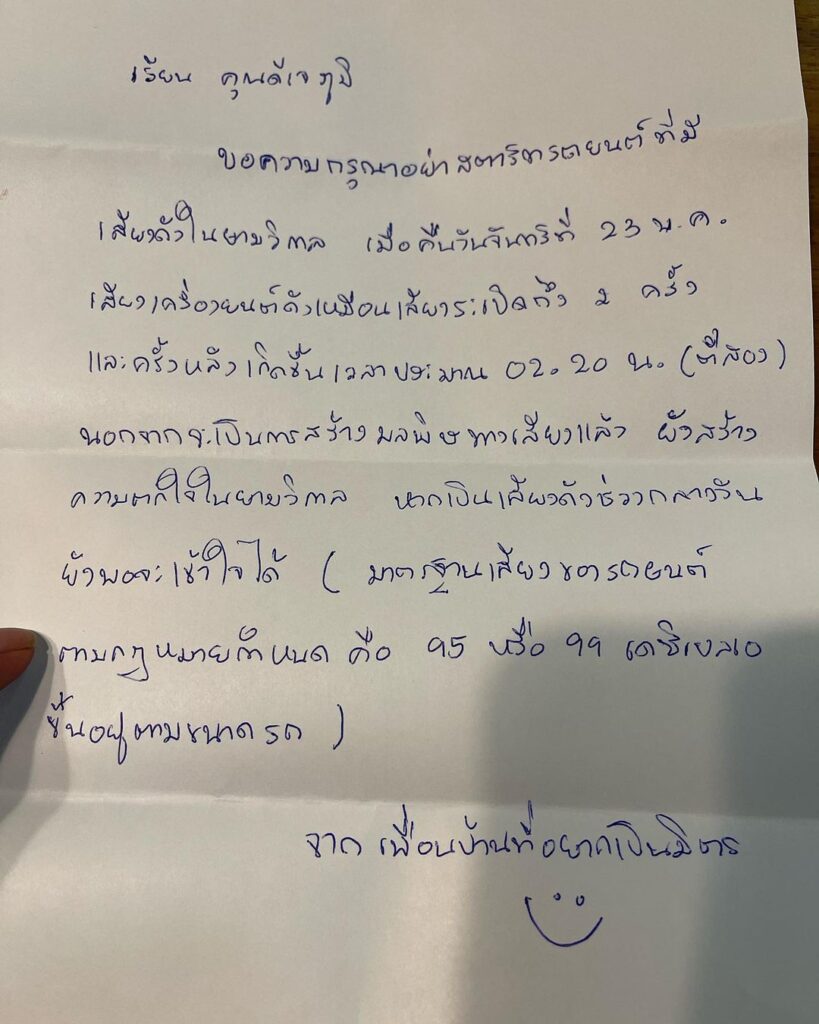 เรียน คุณดีเจภูมิ
ขอความกรุณาอย่าสตาร์ทรถยนต์ที่มี
เสียงดังในยามวิกาล เมื่อคืนวันจันทร์ที่ 23 พ.ค.
เสียงเครื่องยนต์ดังเหมือนเสียงระเบิดถึง 2 ครั้ง
และครั้งหลังเกิดขึ้นเวลาประมาณ 02.20 น. (ตีสอง)
นอกจากจะเป็นการสร้างมลพิษทางเสียงแล้ว ยังสร้าง
ความตกใจในยามวิกาล หากเป็นเสียงดังช่วงกลางวัน
ยังพอจะเข้าใจได้ ( มาตรฐานเสียงของรถยนต์
ตามกฎหมายกำหนด คือ 95 หรือ 99 เดซิเบลเอ
ขึ้นอยู่ตามขนาดรถ )
จาก เพื่อนบ้านที่อยากเป็นมิตร